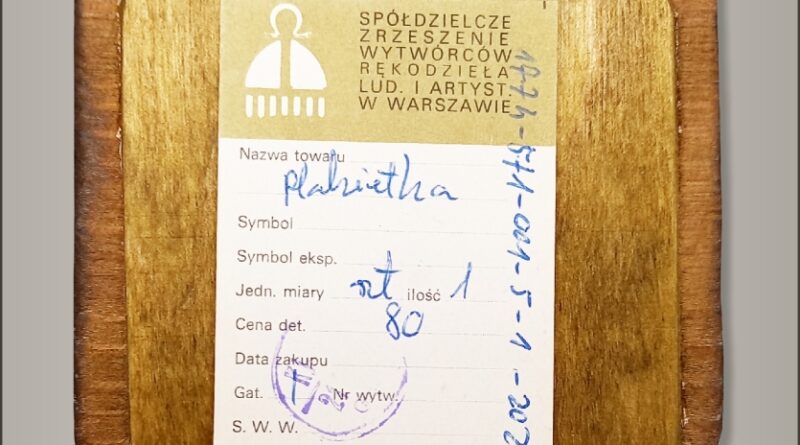 SPÓŁDZIELCZE
ZRZESZENIE
WYTWÓRCÓW
RĘKODZIEŁA
LUD. I ARTYST.
W WARSZAWIE
Nazwa towaru
Plakietka
Symbol
Symbol eksp.
Jedn. miary szt ilość 1
Cena det. 80
Data zakupu
Gat. I Nr wytw.
S. W. W.